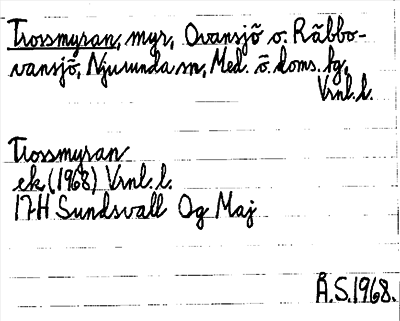 Trossmyran, myr, Ovansjö o. Räbbo-
vansjö, Njurunda sn, Med. ö. doms. hg,
Vrnl. l.
Trossmyran
ek (1968) Vrnl. l.
17H Sundsvall Og Maj
Å.S. 1968.